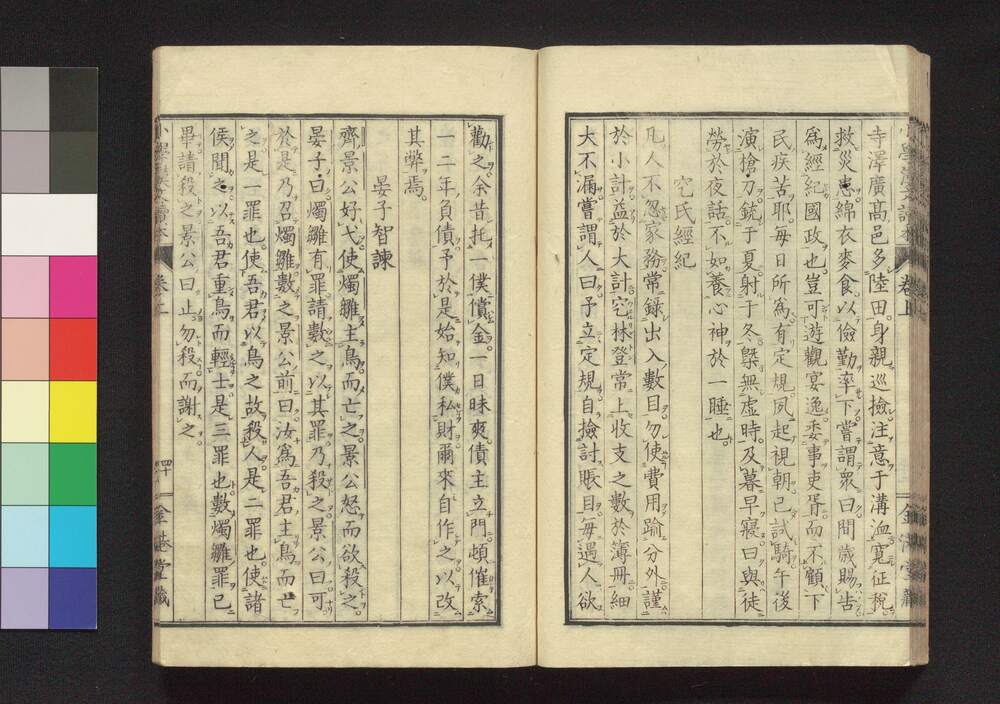 寺澤廣高邑多陸田。身親巡撿。注意于溝洫。寛征税。
救災患。綿衣麥食。以儉勤率下。嘗謂衆曰。間歳賜告
爲經紀國政也。豈可遊觀宴逸。委事吏胥。而不顧下
民疾苦耶。毎日所爲有定規。夙起視朝。已試騎。午後
演槍刀銃。于夏射于冬。槩無虚時。及暮早寢。曰與徒
勞於夜話。不如養心神於一睡也。
空氏經紀
凡人不忽家務。常録出入數目。勿使費用踰分外。謹
於小計益於大計。空林登常上收支之數於簿冊。細
大不漏。嘗謂人曰。予立定規。自撿討賬目。毎遇人欲
勸之。余昔托一僕償金。一日昧爽債主立門。頓催索
一二年負債。予於是始知僕私財。爾來自作之。以改
其弊焉。
晏子智諫
齊景公好弋。使燭雛主鳥而亡之。景公怒而欲殺之。
晏子曰。燭雛有罪。請數之以其罪。乃殺之。景公曰可。
於是乃召燭雛。數之景公前曰。汝爲吾君主鳥而亡
之。是一罪也。使吾君以鳥之故殺人。是二罪也。使諸
侯聞之。以吾君重鳥而輕士。是三罪也。數燭雛罪已
畢。請殺之。景公曰。止勿殺而謝之。